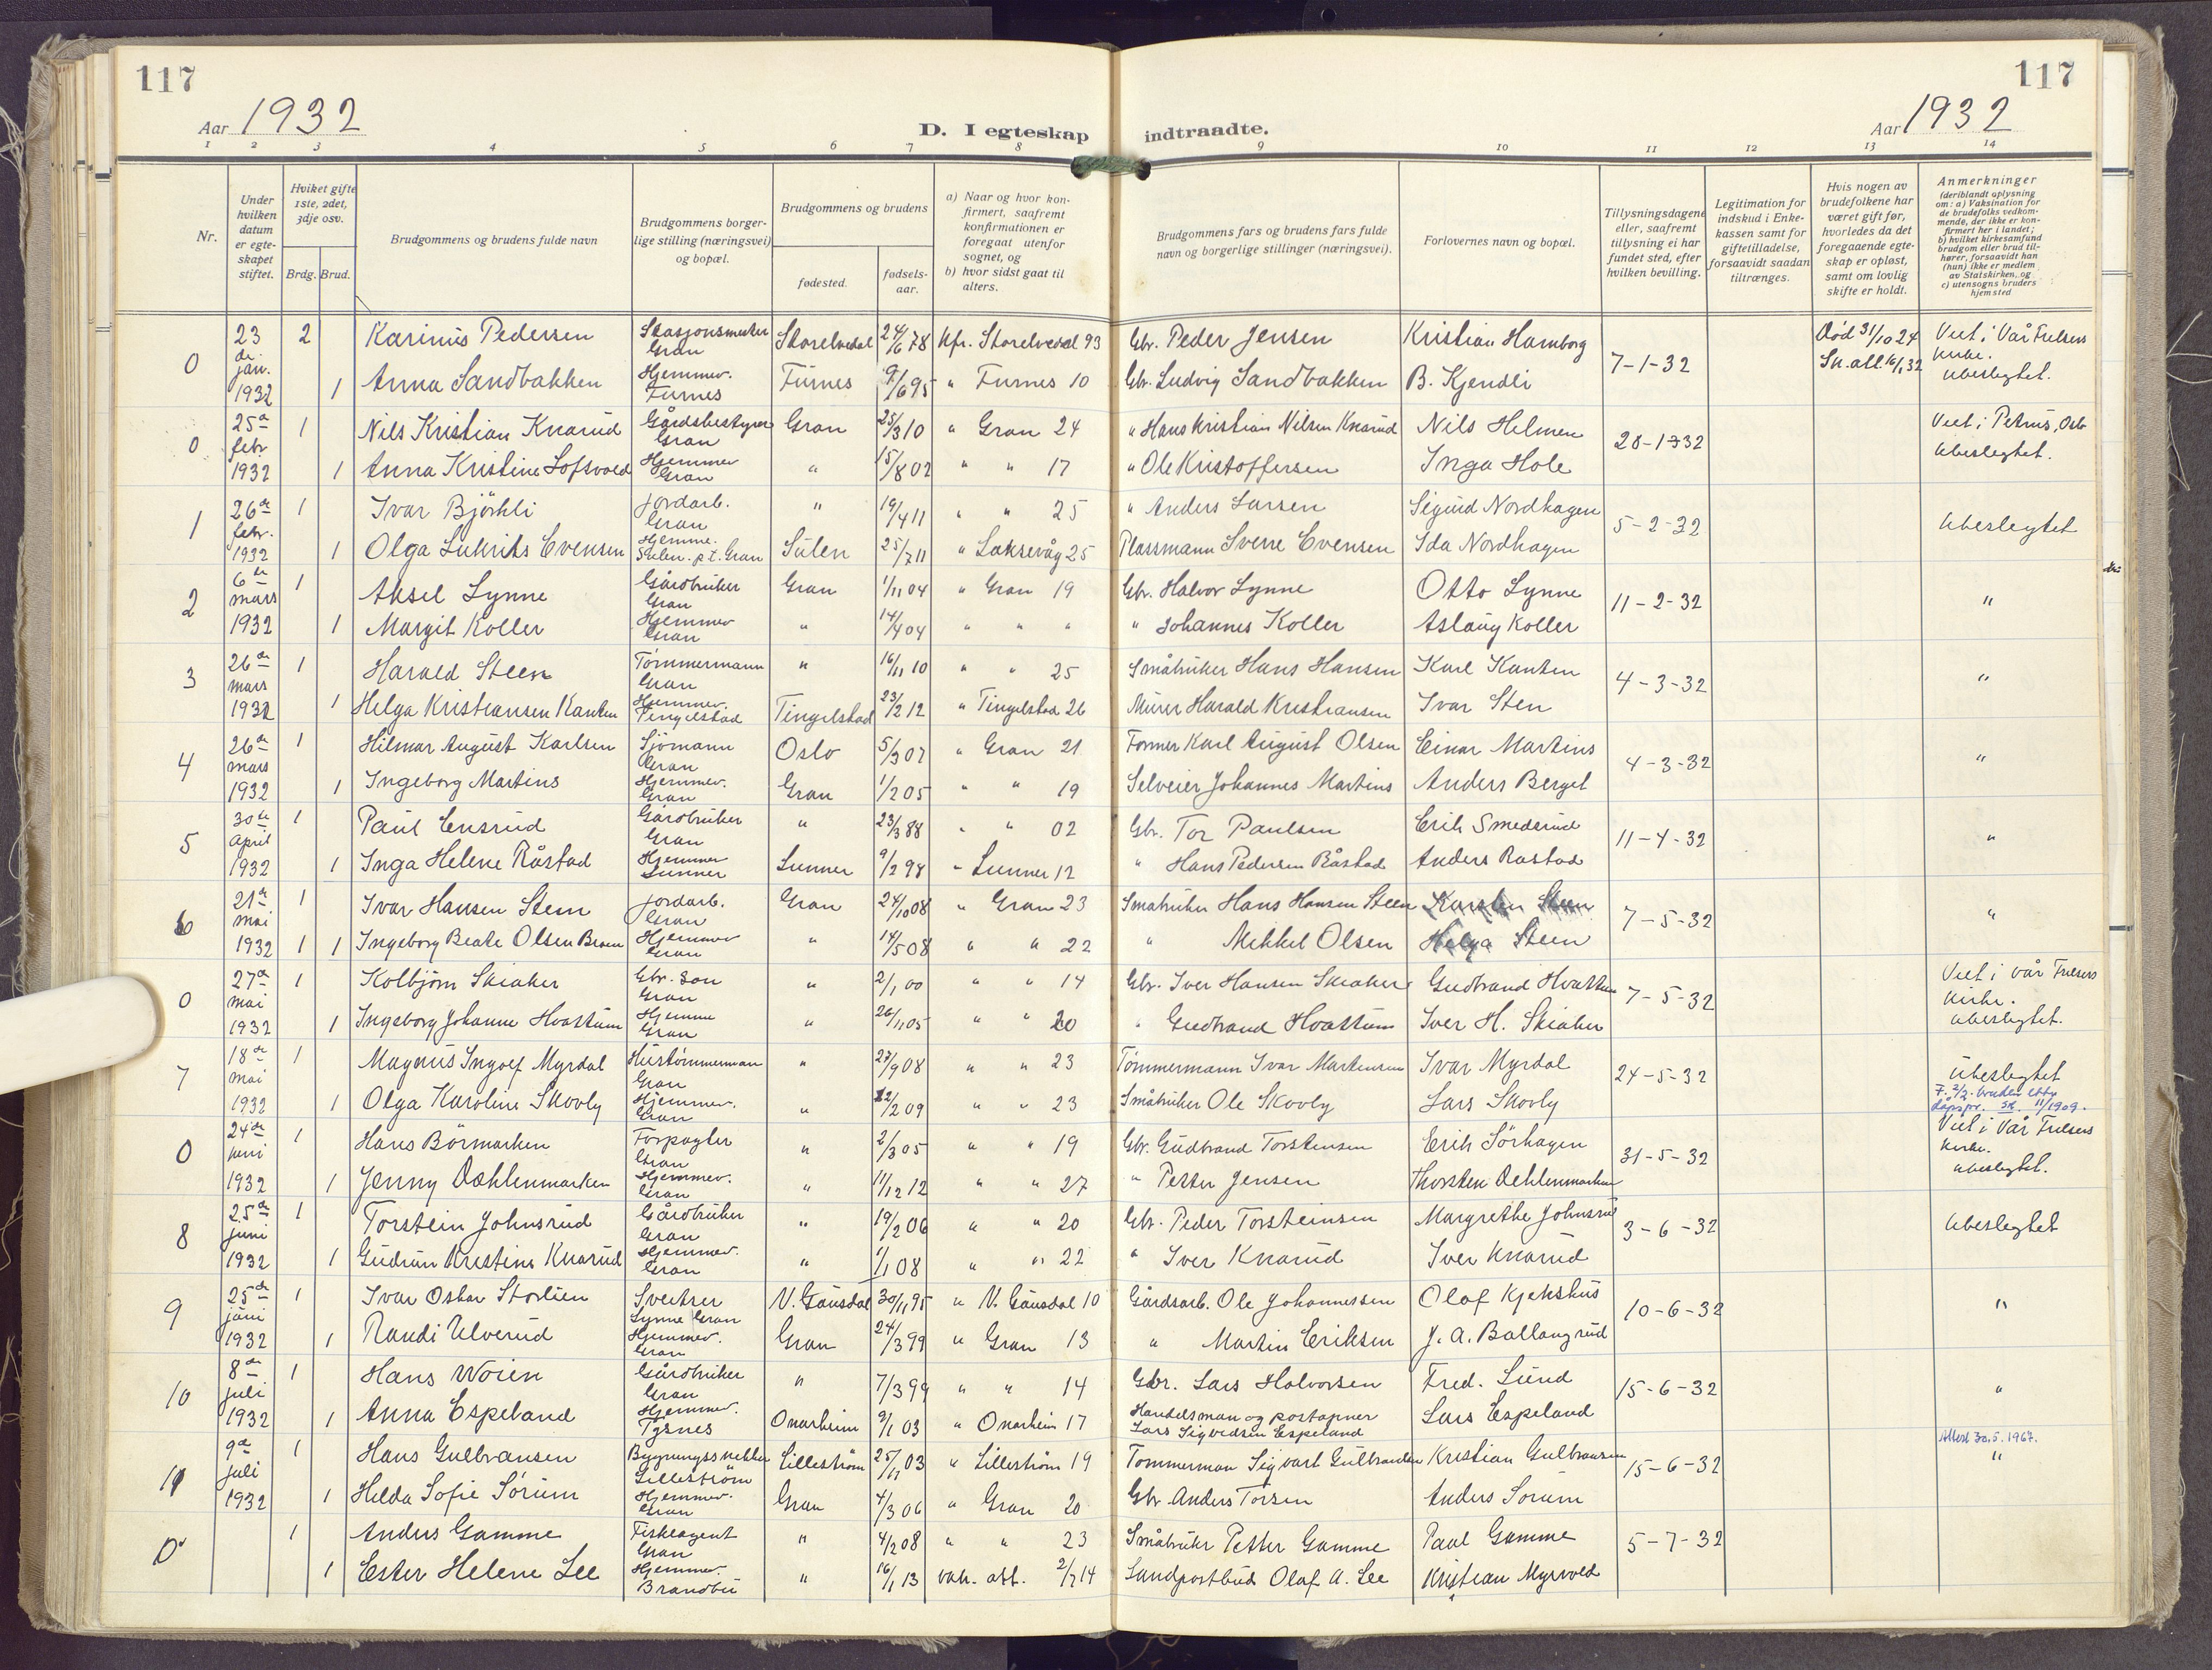 117
117
Aar 1932
D. I egteskap indtraadte.
Aar 1932
1 2 3 4 5 6 7 8 9 10 11 12 13 14
Nr.
Under hvilken datum er egteskapet stiftet.
Hviket gifte 1ste, 2det, 3dje osv.
Brdg. Brud.
Brudgommens og brudens fulde navn
Brudgommens borgerlige stilling (næringsvei) og bopæl.
Brudgommens og brudens
fødested.
fødselsaar.
a) Naar og hvor konfirmert, saafremt konfirmationen er foregaat utenfor sognet, og
b) hvor sidst gaat til alters.
Brudgommens fars og brudens fars fulde navn og borgerlige stillinger (næringsvei).
Forlovernes navn og bopæl.
Tillysningsdagene eller, saafremt tillysning ei har fundet sted, efter hvilken bevilling.
Legitimation for indskud i Enkekassen samt for giftetilladelse, forsaavidt saadan tiltrænges.
Hvis nogen av brudefolkene har været gift før, hvorledes da det foregaaende egteskap er opløst, samt om lovlig skifte er holdt.
Anmerkninger (deriblandt oplysning om: a) Vaksination for de brudefolks vedkommende, der ikke er konfirmert her i landet; b) hvilket kirkesamfund brudgom eller brud tilhører, forsaavidt han (hun) ikke er medlem av Statskirken, og c) utensogns bruders hjemsted
0 23 de jan. 1932 2 Karinus Pedersen Stasjonsmester Gran Storelvedal 24/6 78 Kfr. Storelvedal 93 Gbr. Peder Jensen Kristian Hamborg 7-1-32 Død 31/10 24 Sk.att. 16/1 32 Viet i Vår Frelsers kirke. Ubeslegtet.
1 Anna Sandbakken Hjemmev. Furnes Furnes 9/6 95 " Furnes 10 Gbr. Ludvig Sandbakken B. Kjendli
0 25de febr 1932 1 Nils Kristian Knarud Gårdsbestyrer Gran Gran 25/3 10 " Gran 24 " Hans Kristian Nilsen Knarud Nils Helmen 28-1-32 Viet i Petrus, Oslo Ubeslegtet.
1 Anna Kristine Lofsvold Hjemmev Gran " 15/8 02 " " 17 " Ole Kristoffersen Inga Hole
1 26de febr. 1932 1 Ivar Bjørkli Jordarb. Gran " 19/4 11 " " 25 " Anders Larsen Sigurd Nordhagen 5-2-32 Ubeslegtet
1 Olga Lukrits Evensen Hjemme. Sulen. p.t. Gran Sulen 25/7 11 " Laksevåg 25 Plassmann Sverre Evensen Ida Nordhagen
2 6te mars 1932 1 Aksel Lynne Gårdbruker Gran Gran 1/11 04 " Gran 19 Gbr. Halvor Lynne Otto Lynne 11-2-32 "
1 Margit Koller Hjemmev Gran " 14/4 04 " " " " Johannes Koller Aslaug Koller
3 26de mars 1932 1 Harald Steen Tømmermann Gran " 16/11 10 " " 25 Småbruker Hans Hansen Karl Kanten 4-3-32 "
1 Helga Kristiansen Kanten Hjemmev. Tingelstad Tingelstad 23/2 12 " Tingelstad 26 Murer Harald Kristiansen Ivar Sten
4 26de mars 1932 1 Hilmar August Karlsen Sjömann Gran Oslo 5/3 07 " Gran 21 Former Karl August Olsen Einar Martins 4-3-32 "
1 Ingeborg Martins Hjemmev. Gran Gran 1/2 05 " " 19 Selveier Johannes Martins Anders Berget
5 30te april 1932 1 Paul Ensrud Gårdbruker Gran " 23/3 88 " " 02 Gbr. Tor Paulsen Erik Smedsrud 11-4-32 "
1 Inga Helene Råstad Hjemmev Lunner Lunner 9/2 94 " Lunner 12 " Hans Pedersen Råstad Anders Råstad
6 21de mai 1932 1 Ivar Hansen Steen Jordarb. Gran Gran 24/10 08 " Gran 23 Småbruker Hans Hansen Steen Karsten Steen 7-5-32 "
1 1 Ingeborg Beate Olsen Hjemmev Gran " 14/5 08 " " 22 " Mikkel Olsen Helga Steen
0 27de mai 1932 1 Kolbjørn Skiaker Gbr. søn Gran " 2/1 00 " " 14 Gbr. Iver Hansen Skiaker Gudbrand Hvattum 7-5-32 Viet i vår Frelsers kirke. ubeslegtet.
1 Ingeborg Johanne Hvattum Hjemme Gran " 26/11 05 " " 20 " Gudbrand Hvattum Iver H. Skiaker
7 18de mai 1932 1 Magnus Ingolf Myrdal Hustømmerman Gran " 27/9 08 " " 23 Tømmermann Ivar Martinsen Ivar Myrdal 24-5-32 Ubeslegtet
1 Olga Karoline Skovly Hjemmev. Gran " 22/2 09 " " 23 Småbruker Ole Skovly Lars Skovly
0 24de juni 1932 1 Hans Börmarken Forpagter Gran " 2/3 05 " " 19 Gbr. Gudbrand Torstensen Erik Sörhagen 31-5-32 Viet i Vår Frelsers kirke. ubeslegtet.
1 Jenny Dæhlenmarken Hjemmev. Gran " 11/12 12 " " 27 " Petter Jensen Thorsten Dæhlenmarken
8 25de juni 1932 1 Torstein Johnsrud Gårdbruker Gran " 19/2 06 " " 20 Gbr. Peder Torsteinsen Margrethe Johnsrud 3-6-32 Ubeslegtet
1 Gudrun Kristine Knarud Hjemmev. Gran " 1/1 08 " " 22 " Iver Knarud Iver Knarud
9 25de juni 1932 1 Ivar Oskar Storlien Sveitser Lynne Gran V. Gausdal 30/11 95 " V. Gausdal 10 Gårdsarb. Ole Johannessen Olaf Kjekshus 10-6-32 "
1 Randi Ulverud Hjemmev. Gran Gran 24/3 99 " Gran 13 " Martin Eriksen J. A. Ballangrud
10 8de juli 1932 1 Hans Woien Gårdbruker Gran " 7/3 99 " " 14 Gbr. Lars Halvorsen Fred. Lund 15-6-32 "
1 Anna Espeland Hjemmev. Tysnes Onarheim 9/1 03 " Onarheim 17 Handelsman og poståpner Lars Sigvidsen Espeland Lars Espeland
11 9de juli 1932 1 Hans Gulbransen Bygningssnekker Lilleström Lilleström 25/11 03 " Lilleström 19 Tommerman Sigvart Gulbransen Kristian Gulbransen 15-6-32 Attest 30.5.1967. "
1 Helda Sofie Sörum Hjemmev. Gran Gran 4/3 06 " Gran 20 Gbr Anders Torsen Anders Sorum
0 1 Anders Gamme Fiskeagent Gran " 4/2 08 " " 23 Småbruker Petter Gamme Paul Gamme 5-7-32
1 Ester Helene Lee Hjemmev. Brandbu " 16/1 13 vak. att. 2/7 14 Landpostbud Olaf A. Lee Kristian Myrvold